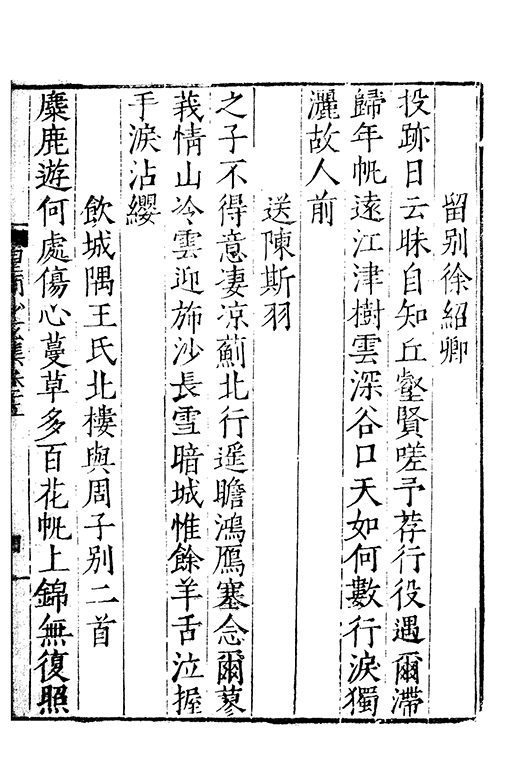 留别徐紹卿
投跡日云昧自知丘壑賢嗟予荐行役遇爾滯
歸年帆遠江津樹雲深谷口天如何數行淚獨
灑故人前
送陳斯羽
之子不得意淒涼薊北行遥瞻鴻鴈塞念爾蓼
莪情山冷雲迎斾沙長雪暗城惟餘羊舌泣握
手淚沾纓
飲城隅王氏北樓與周子别二首
麋鹿遊何處傷心蔓草多百花帆上錦無復照